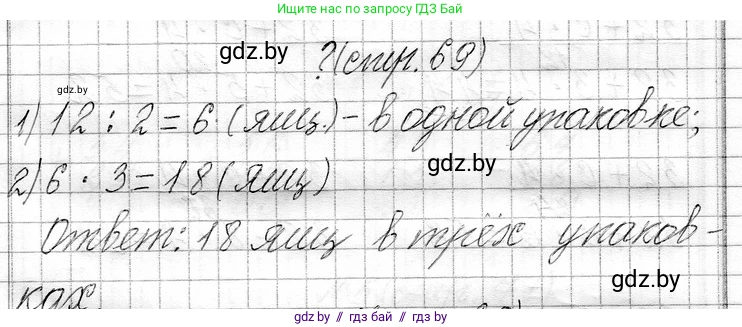 Ищите нас по запросу ГДЗ Бай
gdz.by
?(стр. 69)
gdz.by
1) 12 : 2 = 6 (яиц.) - в одной упаковке;
gdz.by
2) 6 · 3 = 18 (яиц)
Ответ: 18 яиц в трёх упаков-
gdz.by
ках.
gdz.by // гдз бай // gdz.by